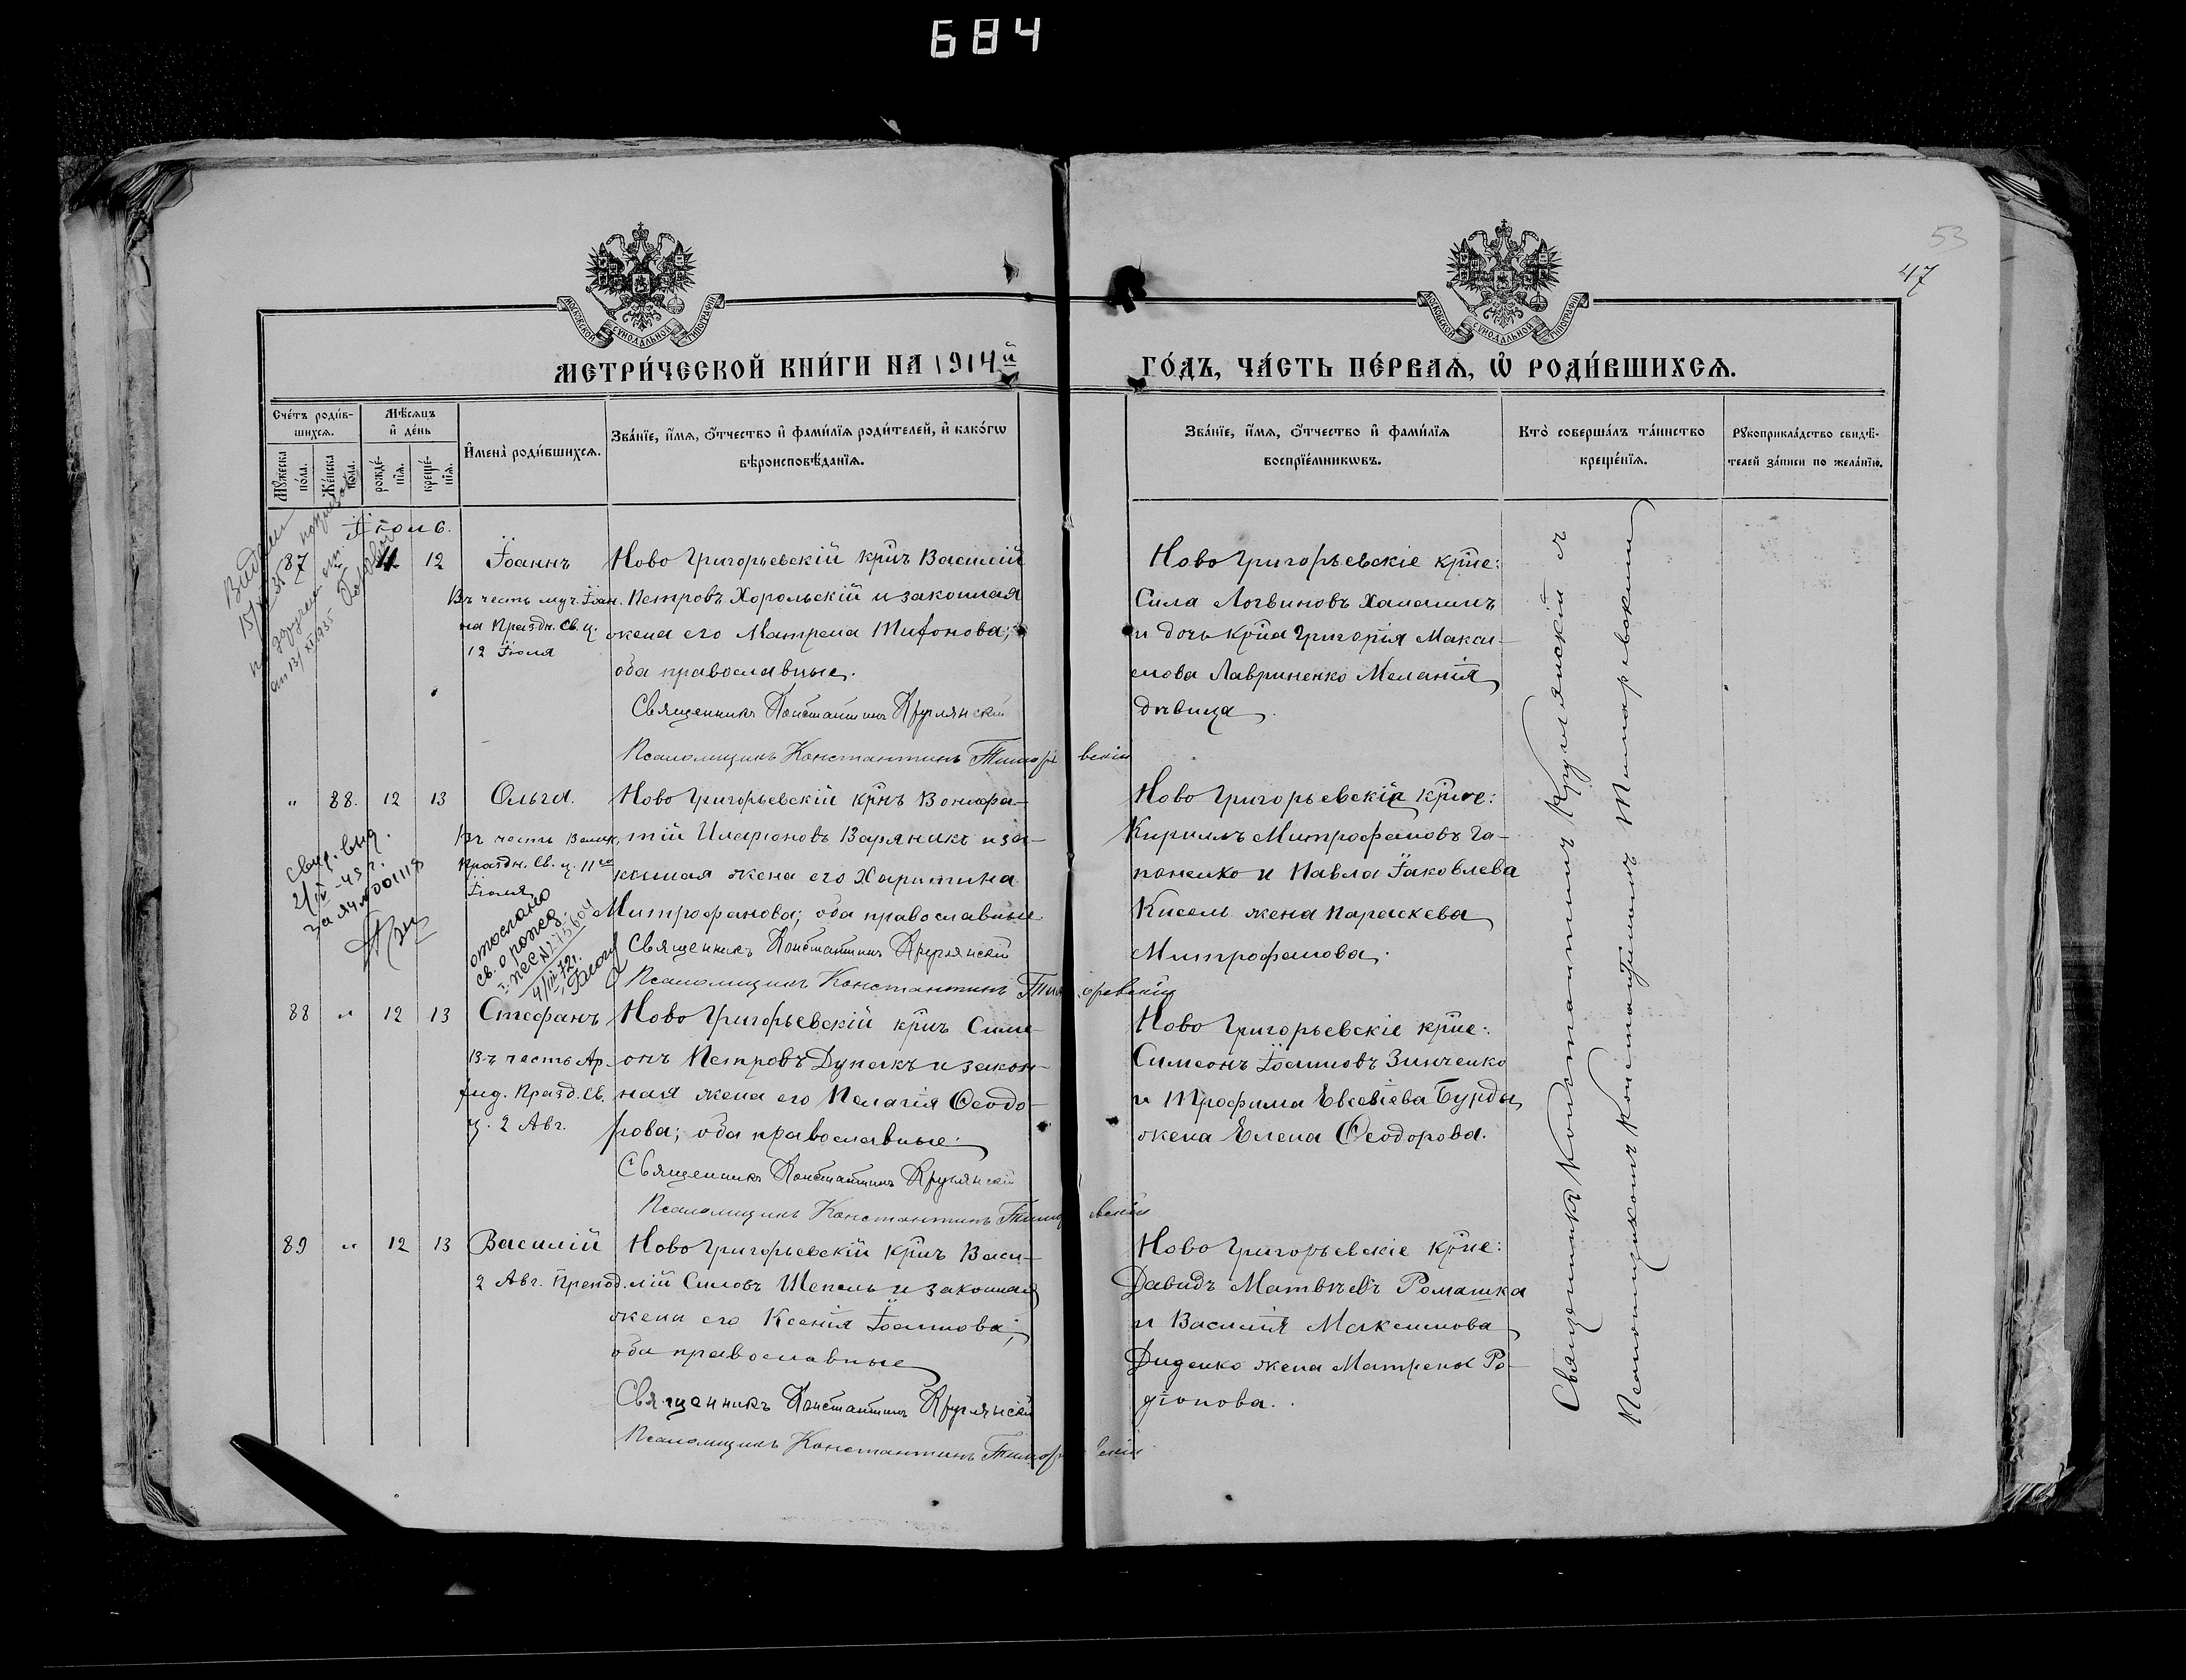 684
53
47
МОСКОВСКОЙ СѴНОДАЛЬНОЙ ТИПОГРАФІИ
МОСКОВСКОЙ СѴНОДАЛЬНОЙ ТИПОГРАФІИ
МЕТРИ́ЧЕСКОЙ КНИ́ГИ НА 1914й ГО́ДЪ, ЧА́СТЬ ПЕ́РВАѦ, Ѡ҆ РОДИ́ВШИХСѦ.
Счéтъ роди́в-
шихсѧ.
Мꙋжеска по́ла.
Же́нска по́ла.
Мѣ́сѧцъ
и҆ де́нь
рожде́-
нїѧ.
креще́-
нїѧ.
И҆мена̀ роди́вшихсѧ.
Зва́нїе, и҆́мѧ, ѻ҆́тчество и҆ фами́лїѧ роди́телей, и҆ како́гѡ
вѣроисповѣ́данїѧ.
Зва́нїе, и҆́мѧ, ѻ҆́тчество и҆ фами́лїѧ
воспрїе́мникѡвъ.
Кто̀ соверша́лъ та́инство
креще́нїѧ.
Рꙋкоприкла́дство свидѣ́-
телей за́писи по жела́нїю.
Іюль.
87 11 12 Іоаннъ
Въ честь муч. Іоан.
на Праздн. св. ц.
12 Іюля
Ново Григорьевскій крнъ Василій
Петровъ Хорольскій и законная
жена его Матрена Тифонова;
оба православные.
Священникъ Константинъ Круглянскій
Псаломщикъ Константинъ
Ново Григорьевскіе крне:
Сила Логвиновъ Халалинъ
и дочь крна Григорія Макси-
мова Лавриненко Меланія
дѣвица.
" 88. 12 13 Ольга.
Въ честь
Праздн. св. ц. 11го
Іюля
Ново Григорьевскій крнъ Вонифа-
тій Иларіоновъ Варяникъ и за-
конная жена его Харитина
Митрофанова; оба православные
Священникъ Константинъ Круглянскій
Псаломщикъ Константинъ
Ново Григорьевскіе крне:
Кириллъ Митрофановъ Га-
паненко и Павла Іаковлева
Кисель жена Параскева
Митрофанова.
свид. выд.
отослано
св. о рожд.
4/III 72 г.
88 " 12 13 Стефанъ
Въ честь Ар-
хид. Празд. св.
ц. 2 Авг.
Ново Григорьевскій крнъ Симе-
онъ Петровъ Дупакъ и закон-
ная жена его Пелагія Ѳеодо-
рова; оба православные.
Священникъ Константинъ Круглянскій
Псаломщикъ Константинъ
Ново Григорьевскіе крне:
Симеонъ Іоанновъ Зинченко
и Трофима Евсевіева Бурды
жена Елена Ѳеодорова.
89 " 12 13 Василій
2 Авг. Препод.
Ново Григорьевскій крнъ Васи-
лій Силовъ Шепель и законная
жена его Ксенія Іоаннова;
оба православные
Священникъ Константинъ Круглянскій
Псаломщикъ Константинъ
Ново Григорьевскіе крне:
Давидъ Матвѣевъ Ромашка
и Василія Максимова
Диденко жена Матрена Ро-
діонова.
Священникъ Константинъ Круглянскій съ
Псаломщикомъ Константиномъ